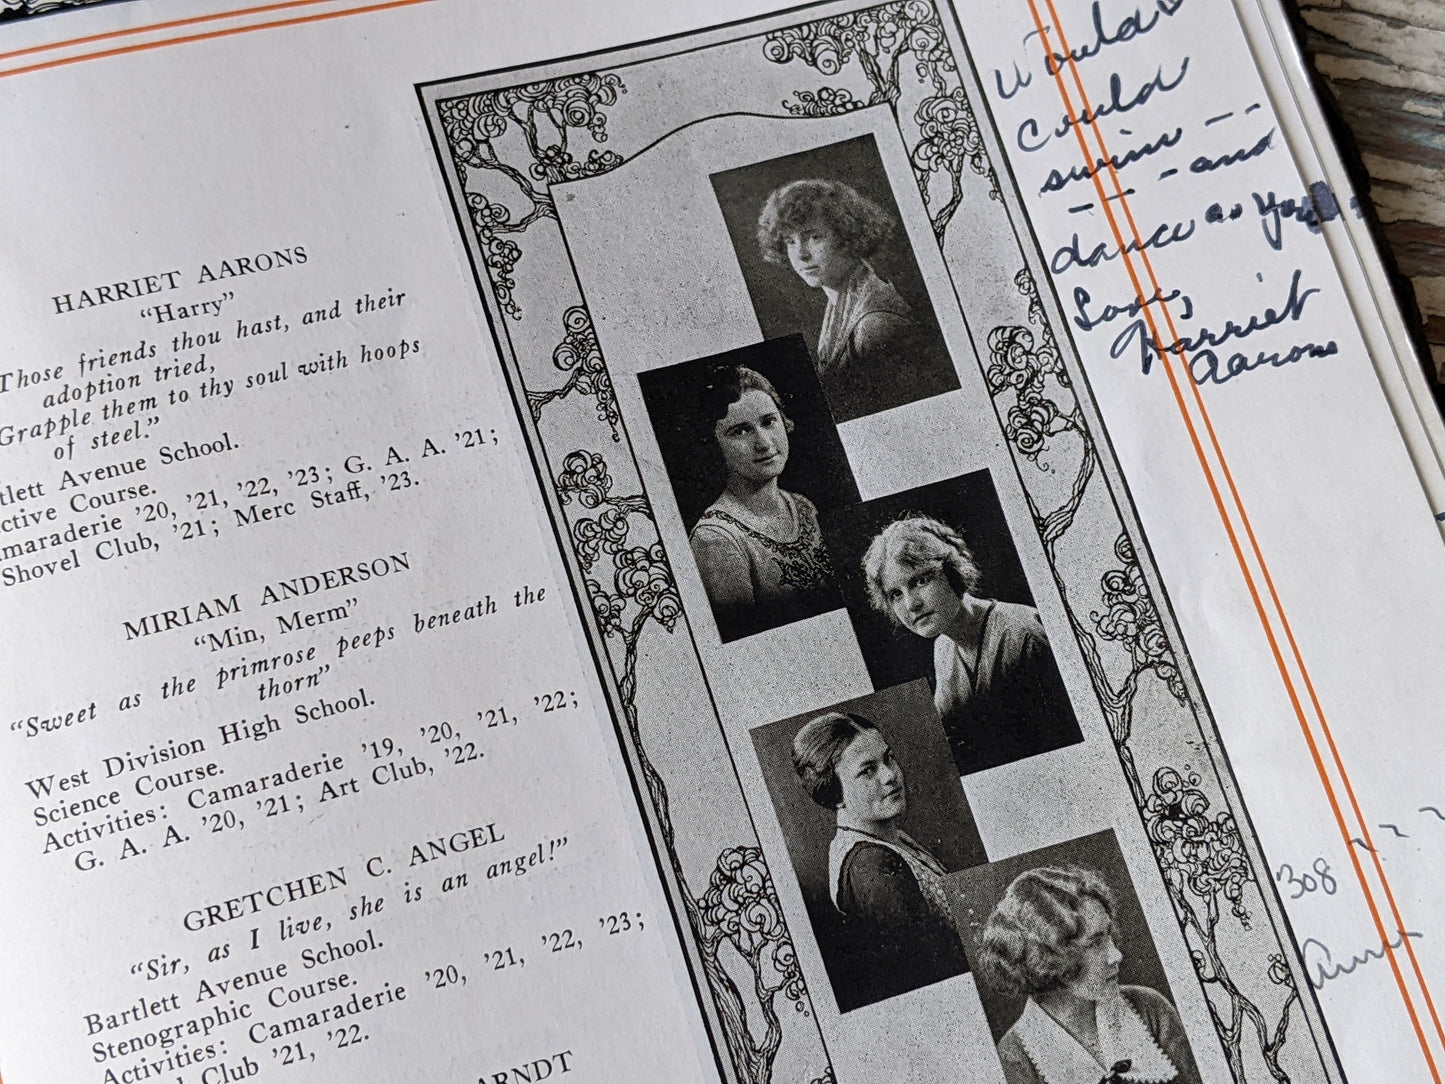 HARRIET AARONS
“Harry”
Those friends thou hast, and their
adoption tried,
Grapple them to thy soul with hoops
of steel.”
tlett Avenue School.
ctive Course.
maraderie ’20, ’21, ’22, ’23; G. A. A. ’21;
Shovel Club, ’21; Merc Staff, ’23.
MIRIAM ANDERSON
“Min, Merm”
“Sweet as the primrose peeps beneath the
thorn”
West Division High School.
Science Course.
Activities: Camaraderie ’19, ’20, ’21, ’22;
G. A. A. ’20, ’21; Art Club, ’22.
GRETCHEN C. ANGEL
“Sir, as I live, she is an angel!”
Bartlett Avenue School.
Stenographic Course.
Activities: Camaraderie ’20, ’21, ’22, ’23;
Club ’21, ’22.
ARNDT
Would
could
swim --
--- and
dance as you
Love,
Harriet
Aarons
308 ???